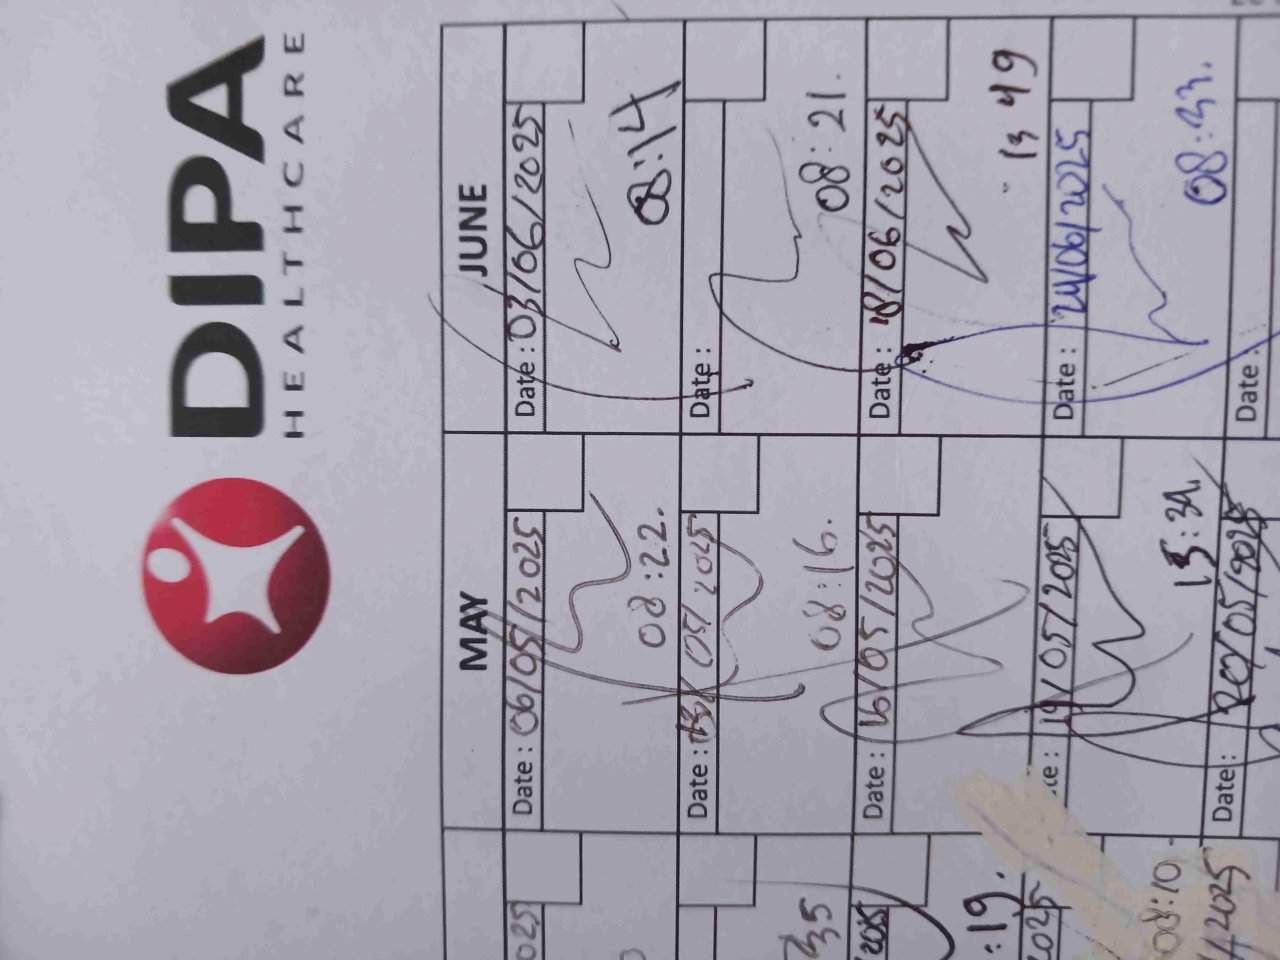 DIPA
HEALTHCARE
MAY
JUNE
Date : 06/05/2025
08:22.
Date : 03/06/2025
08:14
025
Date : 13/05/2025
08:16.
Date :
08:21.
35
Date : 16/05/2025
Date : 18/06/2025
13 49
2025
:19.
19/05/2025
13:39.
Date : 24/06/2025
08:33.
2025
08:10
Date : 20/05/2025
Date :
2025